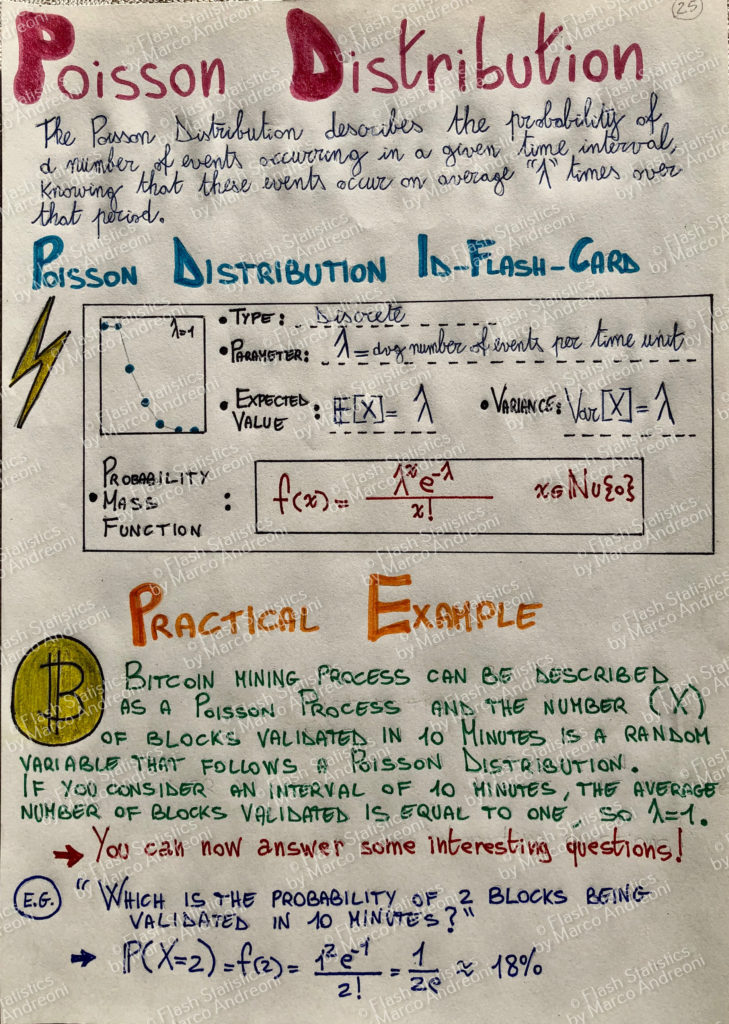 25
Poisson Distribution
The Poisson Distribution describes the probability of
a number of events occurring in a given time interval,
knowing that these events occur on average "λ" times over
that period.
Poisson Distribution Id-Flash-Card
λ=1
• Type: Discrete
• Parameter: λ = avg number of events per time unit
• Expected Value: E[X] = λ
• Variance: Var[X] = λ
• Probability Mass Function:
f(x) = λ^x e^-λ / x!   x ∈ ℕ∪{0}
Practical Example
B
Bitcoin mining process can be described
as a Poisson Process and the number (X)
of blocks validated in 10 minutes is a random
variable that follows a Poisson Distribution.
If you consider an interval of 10 minutes, the average
number of blocks validated is equal to one, so λ=1.
→ You can now answer some interesting questions!
E.G. "Which is the probability of 2 blocks being
validated in 10 minutes?"
→ P(X=2) = f(2) = 1^2 e^-1 / 2! = 1 / 2e ≈ 18%
© Flash Statistics
by Marco Andreoni